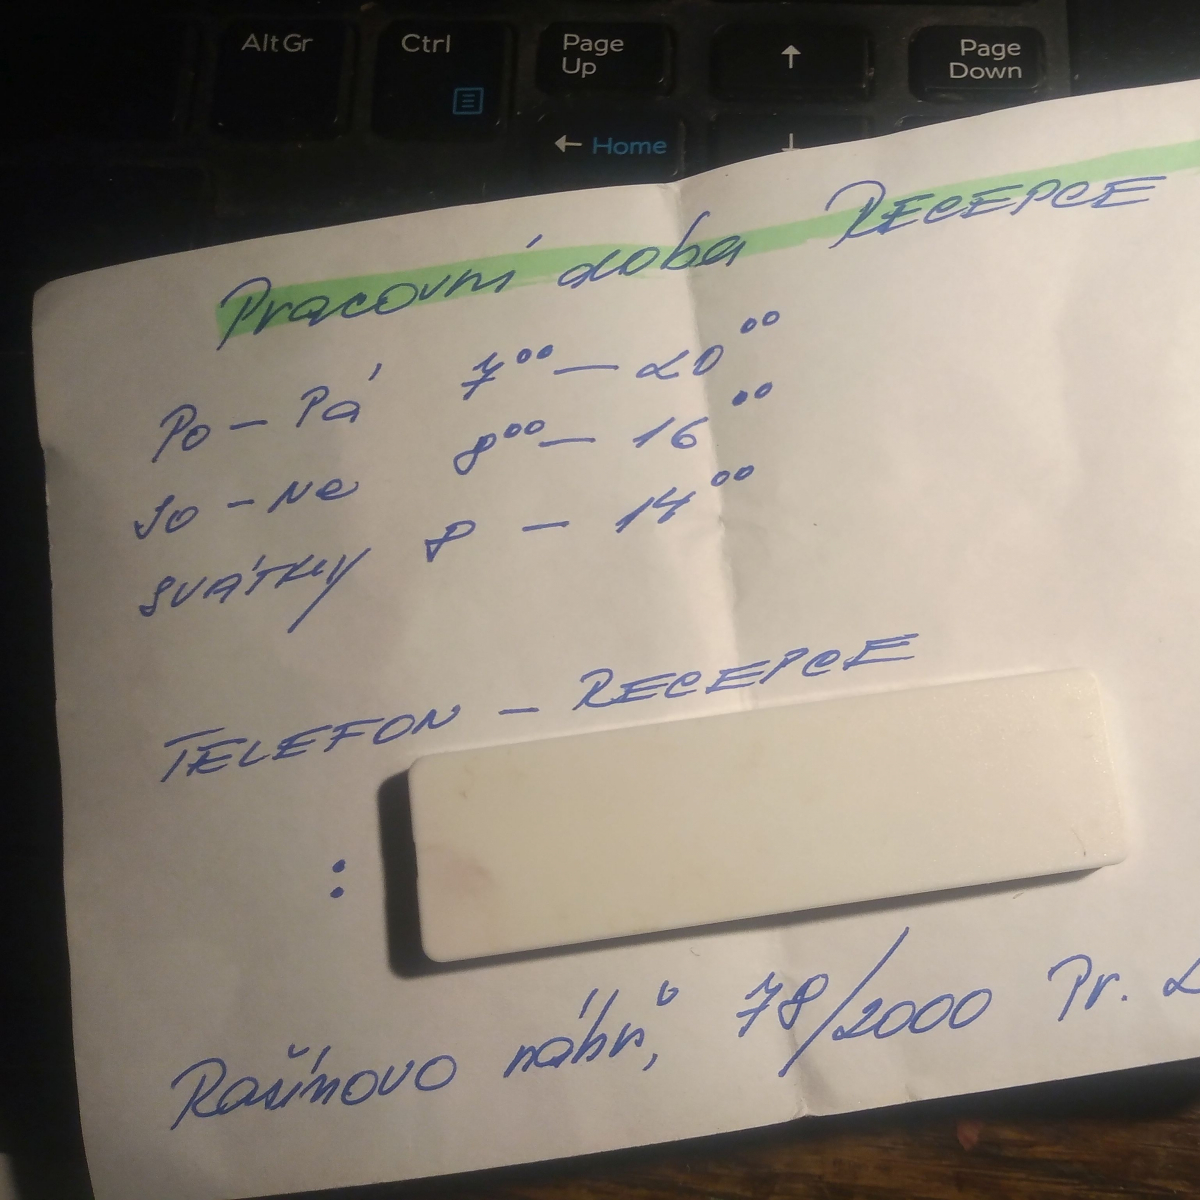 Alt Gr
Ctrl
Page Up
↑
Page Down
← Home
↓
Pracovní doba RECEPCE
Po – Pá 7⁰⁰ – 20⁰⁰
So – Ne 8⁰⁰ – 16⁰⁰
SVÁTKY 8 – 14⁰⁰
TELEFON – RECEPCE
:
Rašínovo nábř. 78/2000 Pr. 2